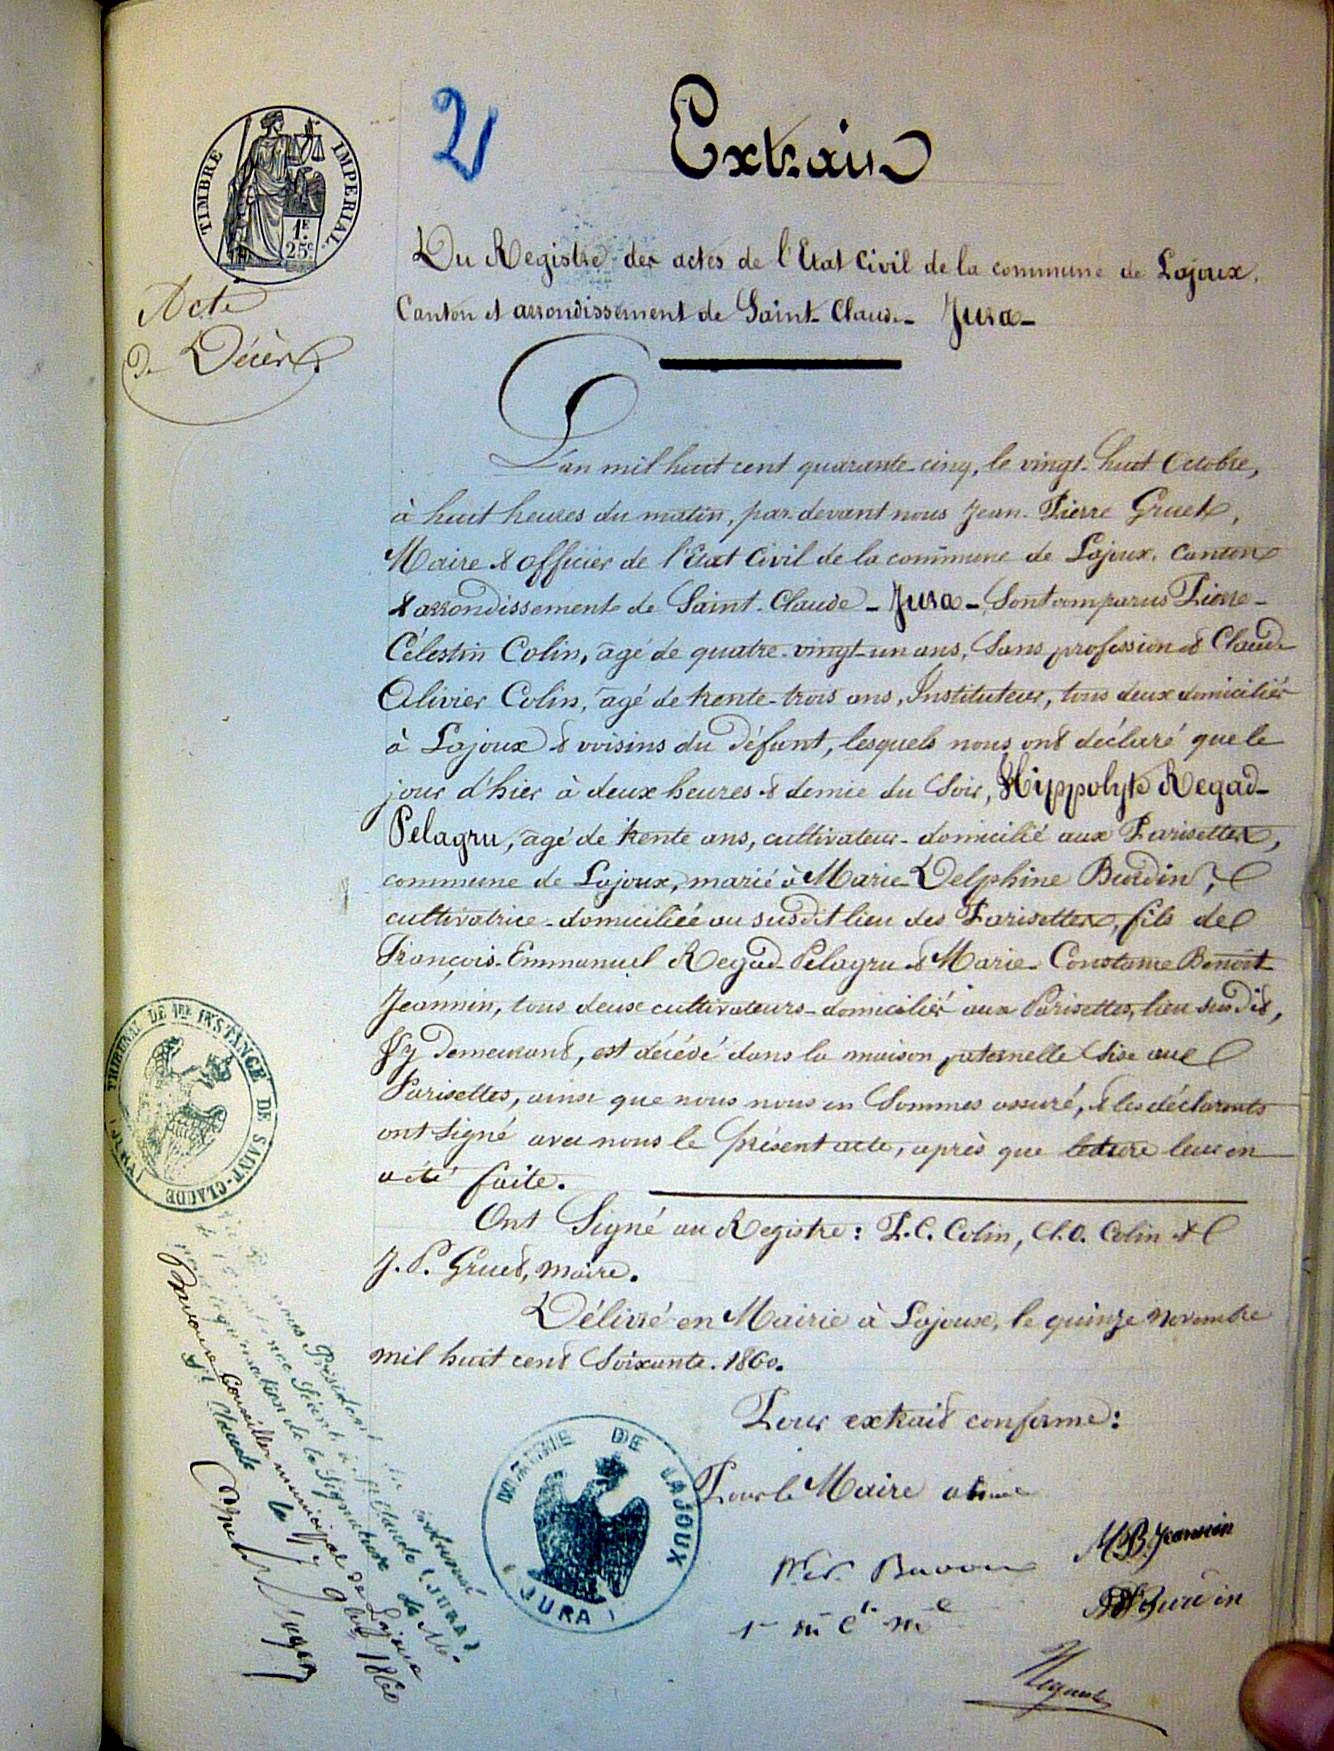 TIMBRE IMPERIAL.
1F.
25c.
2
Extrait
Du Registre des actes de l'Etat Civil de la commune de Lajoux,
Canton et arrondissement de Saint-Claude - Jura -
Acte
de Décès
L'an mil huit cent quarante-cinq, le vingt-huit Octobre,
à huit heures du matin, par-devant nous Jean-Pierre Gruet,
Maire & officier de l'Etat Civil de la commune de Lajoux, canton
& arrondissement de Saint-Claude - Jura -, Sont comparus Pierre-
Célestin Colin, âgé de quatre-vingt-un ans, Sans profession & Claude
Olivier Colin, âgé de trente-trois ans, Instituteur, tous deux domiciliés
à Lajoux & voisins du défunt, lesquels nous ont déclaré que le
jour d'hier à deux heures & demie du Soir, Hippolyte Regad-
Pelagru, âgé de trente ans, cultivateur-domicilié aux Parisettes,
commune de Lajoux, marié à Marie-Delphine Burdin,
cultivatrice-domiciliée au susdit lieu des Parisettes, fils de
François-Emmanuel Regad-Pelagru & Marie-Constance Benoit-
Jeannin, tous deux cultivateurs-domiciliés aux Parisettes, lieu susdit,
& y demeurant, est décédé dans la maison paternelle Sise aux
Parisettes, ainsi que nous nous en Sommes assuré, & les déclarants
ont signé avec nous le présent acte, après que lecture leur en
a été faite.
Ont Signé au Registre: P.C. Colin, Cl.O. Colin &
J.P. Gruet, maire.
Délivré en Mairie à Lajoux, le quinze Novembre
mil huit cent Soixante. 1860.
Pour extrait conforme:
Pour le Maire absent
M.B. Jeannin
Burdin
1er m e m
TRIBUNAL DE 1ère INSTANCE DE SAINT-CLAUDE (JURA)
MAIRIE DE LAJOUX
(JURA)
nous Président
Séant à St Claude (JURA)
légalisation de la Signature de Mr
Conseiller municipal de Lajoux
St Claude le 17 9bre 1860